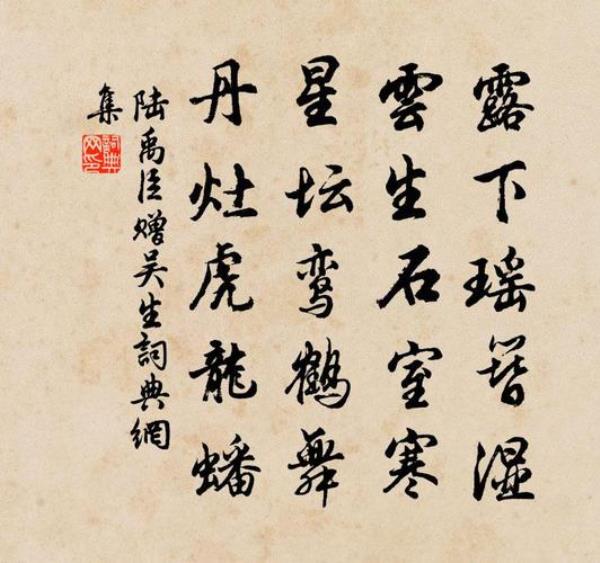 露下瑶簪湿
雲生石室寒
星坛鸾鶴舞
丹灶虎龍蟠
陆禹臣赠吴生詞典網
集
詞典网印